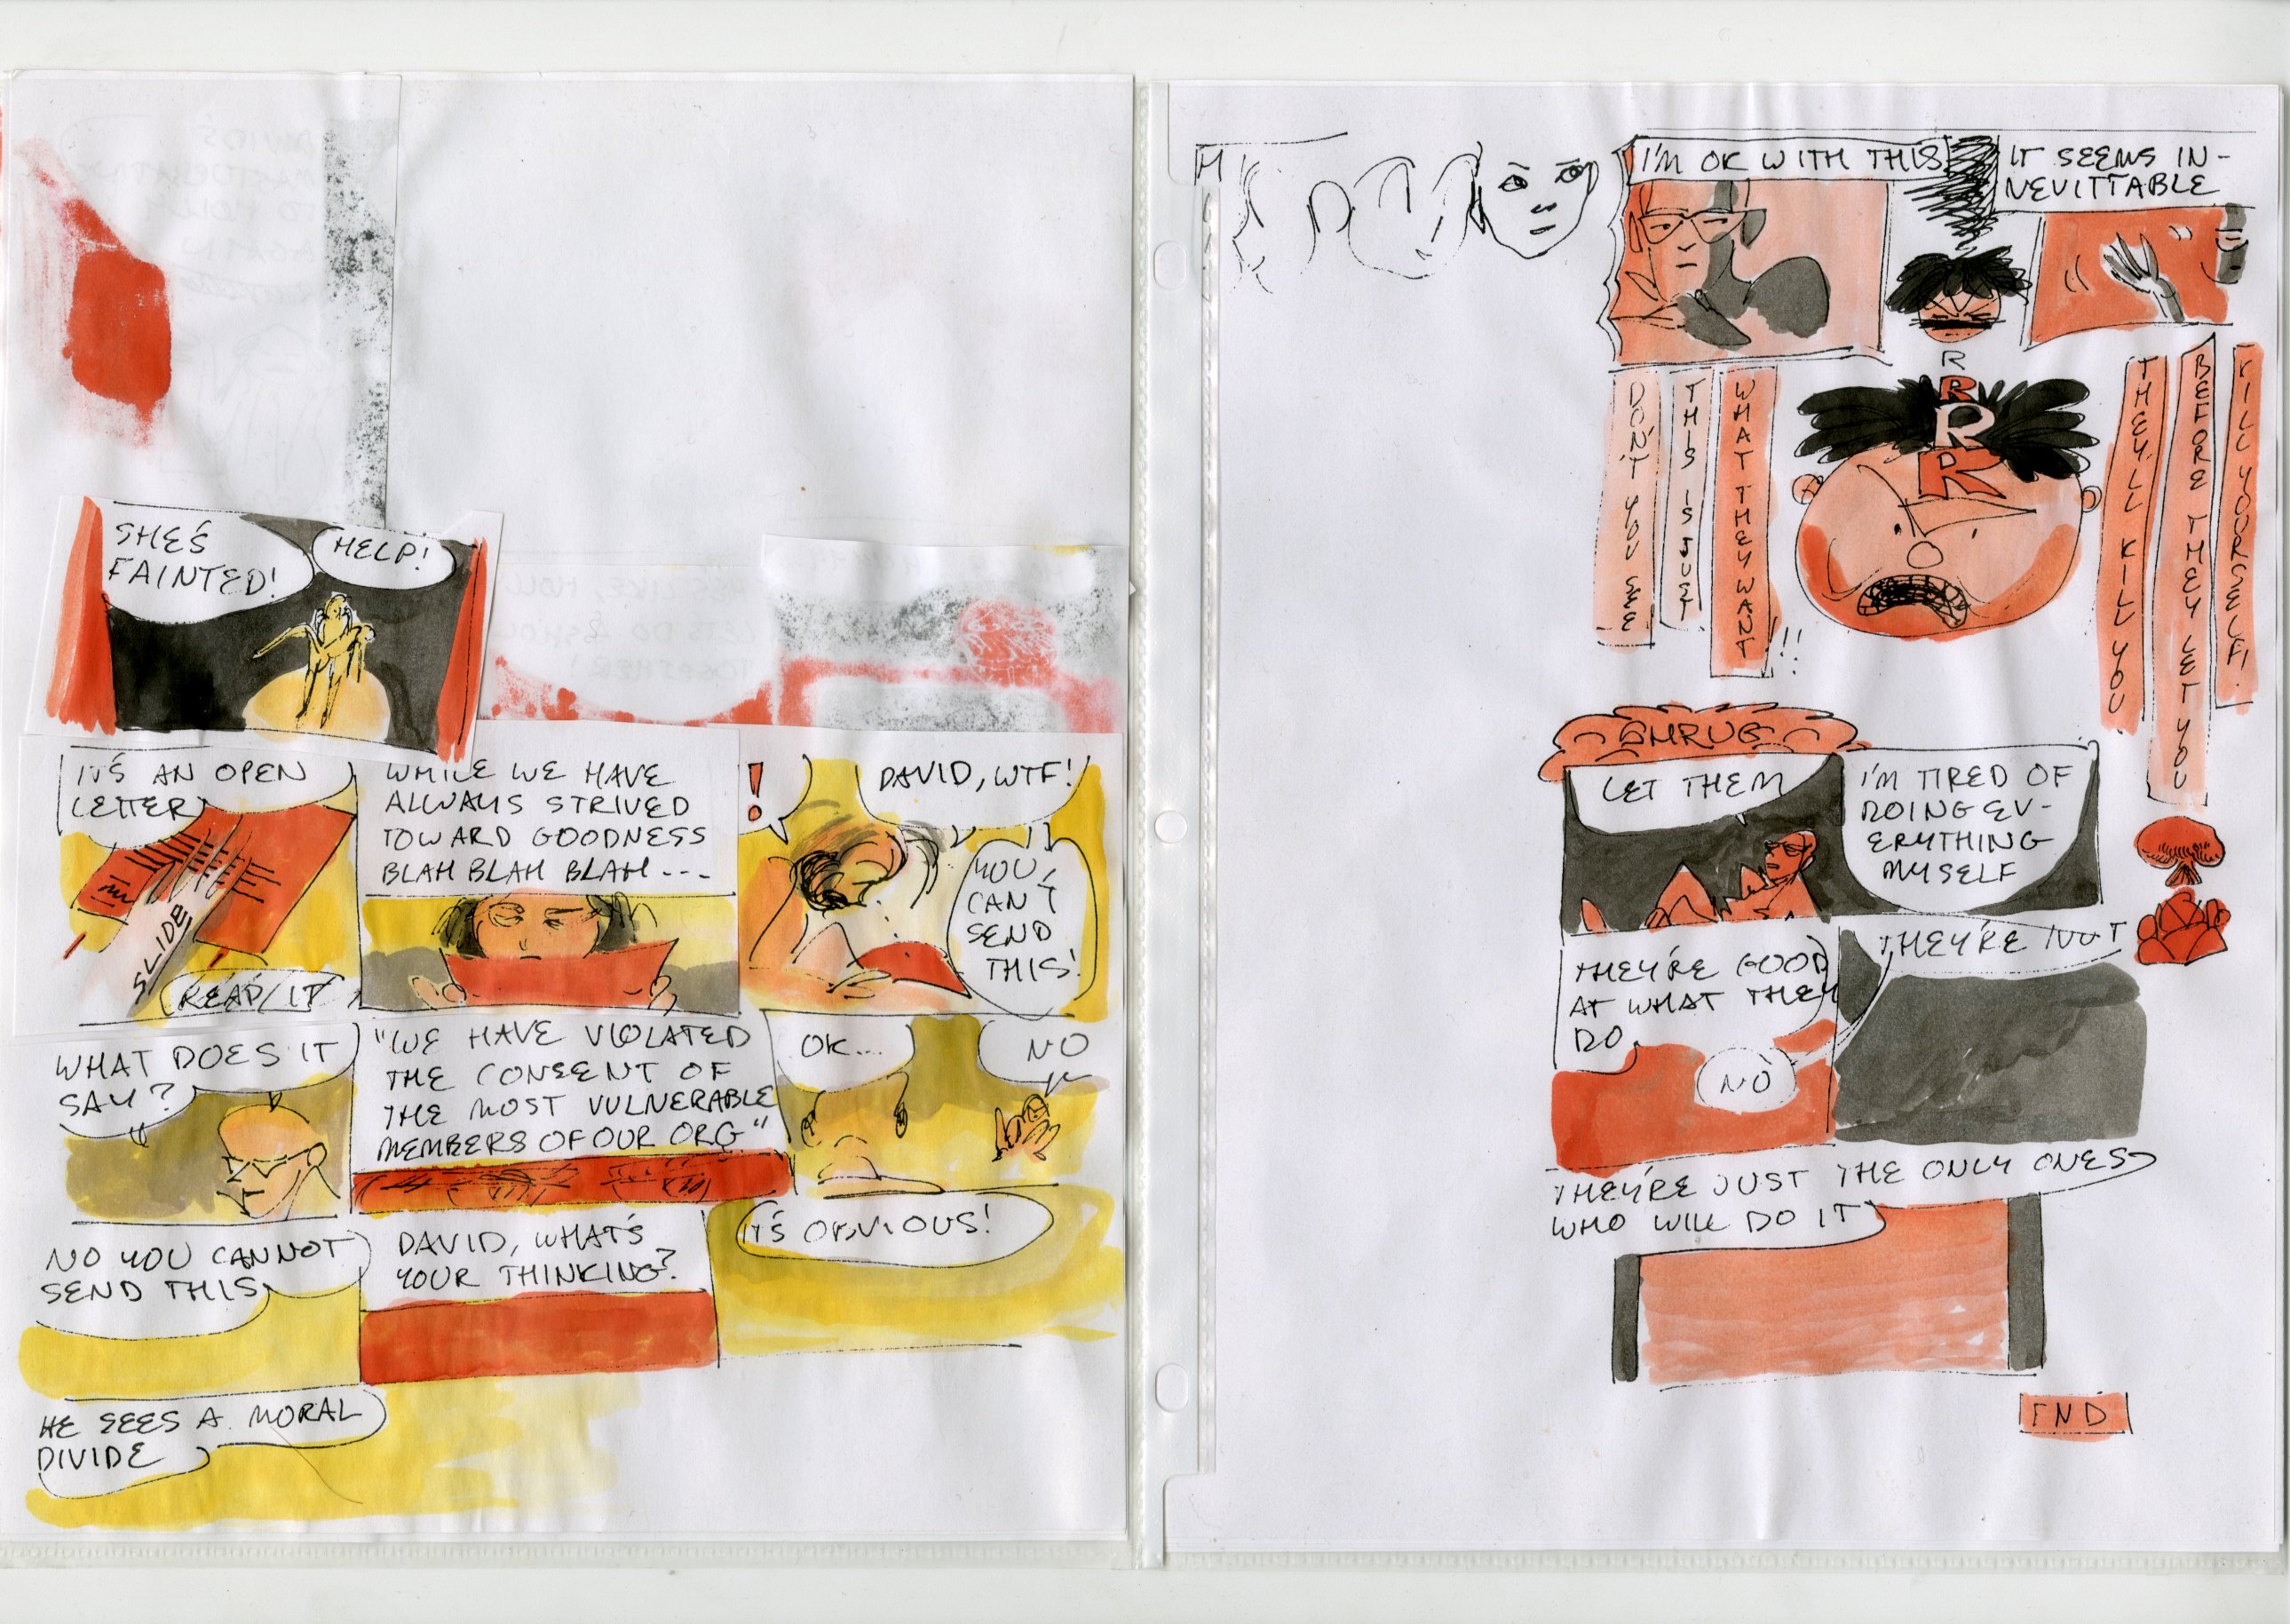 SHE'S
FAINTED!
HELP!
IT'S AN OPEN
LETTER
SLIDE
READ IT
WHILE WE HAVE
ALWAYS STRIVED
TOWARD GOODNESS
BLAH BLAH BLAH ---
!
DAVID, WTF!
YOU
CAN'T
SEND
THIS!
WHAT DOES IT
SAY?
"WE HAVE VIOLATED
THE CONSENT OF
THE MOST VULNERABLE
MEMBERS OF OUR ORG"
OK...
NO
NO YOU CANNOT
SEND THIS
DAVID, WHAT'S
YOUR THINKING?
IT'S OBVIOUS!
HE SEES A MORAL
DIVIDE
I'M OK WITH THIS
IT SEEMS IN-
NEVITTABLE
R
R
R
R
DON'T YOU SEE
THIS IS JUST
WHAT THEY WANT
!!
THEY'LL KILL YOU
BEFORE THEY LET YOU
KILL YOURSELF!
SHRUG
LET THEM
I'M TIRED OF
DOING EV-
ERYTHING
MYSELF
THEY'RE GOOD
AT WHAT THEY
DO
NO
THEY'RE NOT
THEY'RE JUST THE ONLY ONES
WHO WILL DO IT
END